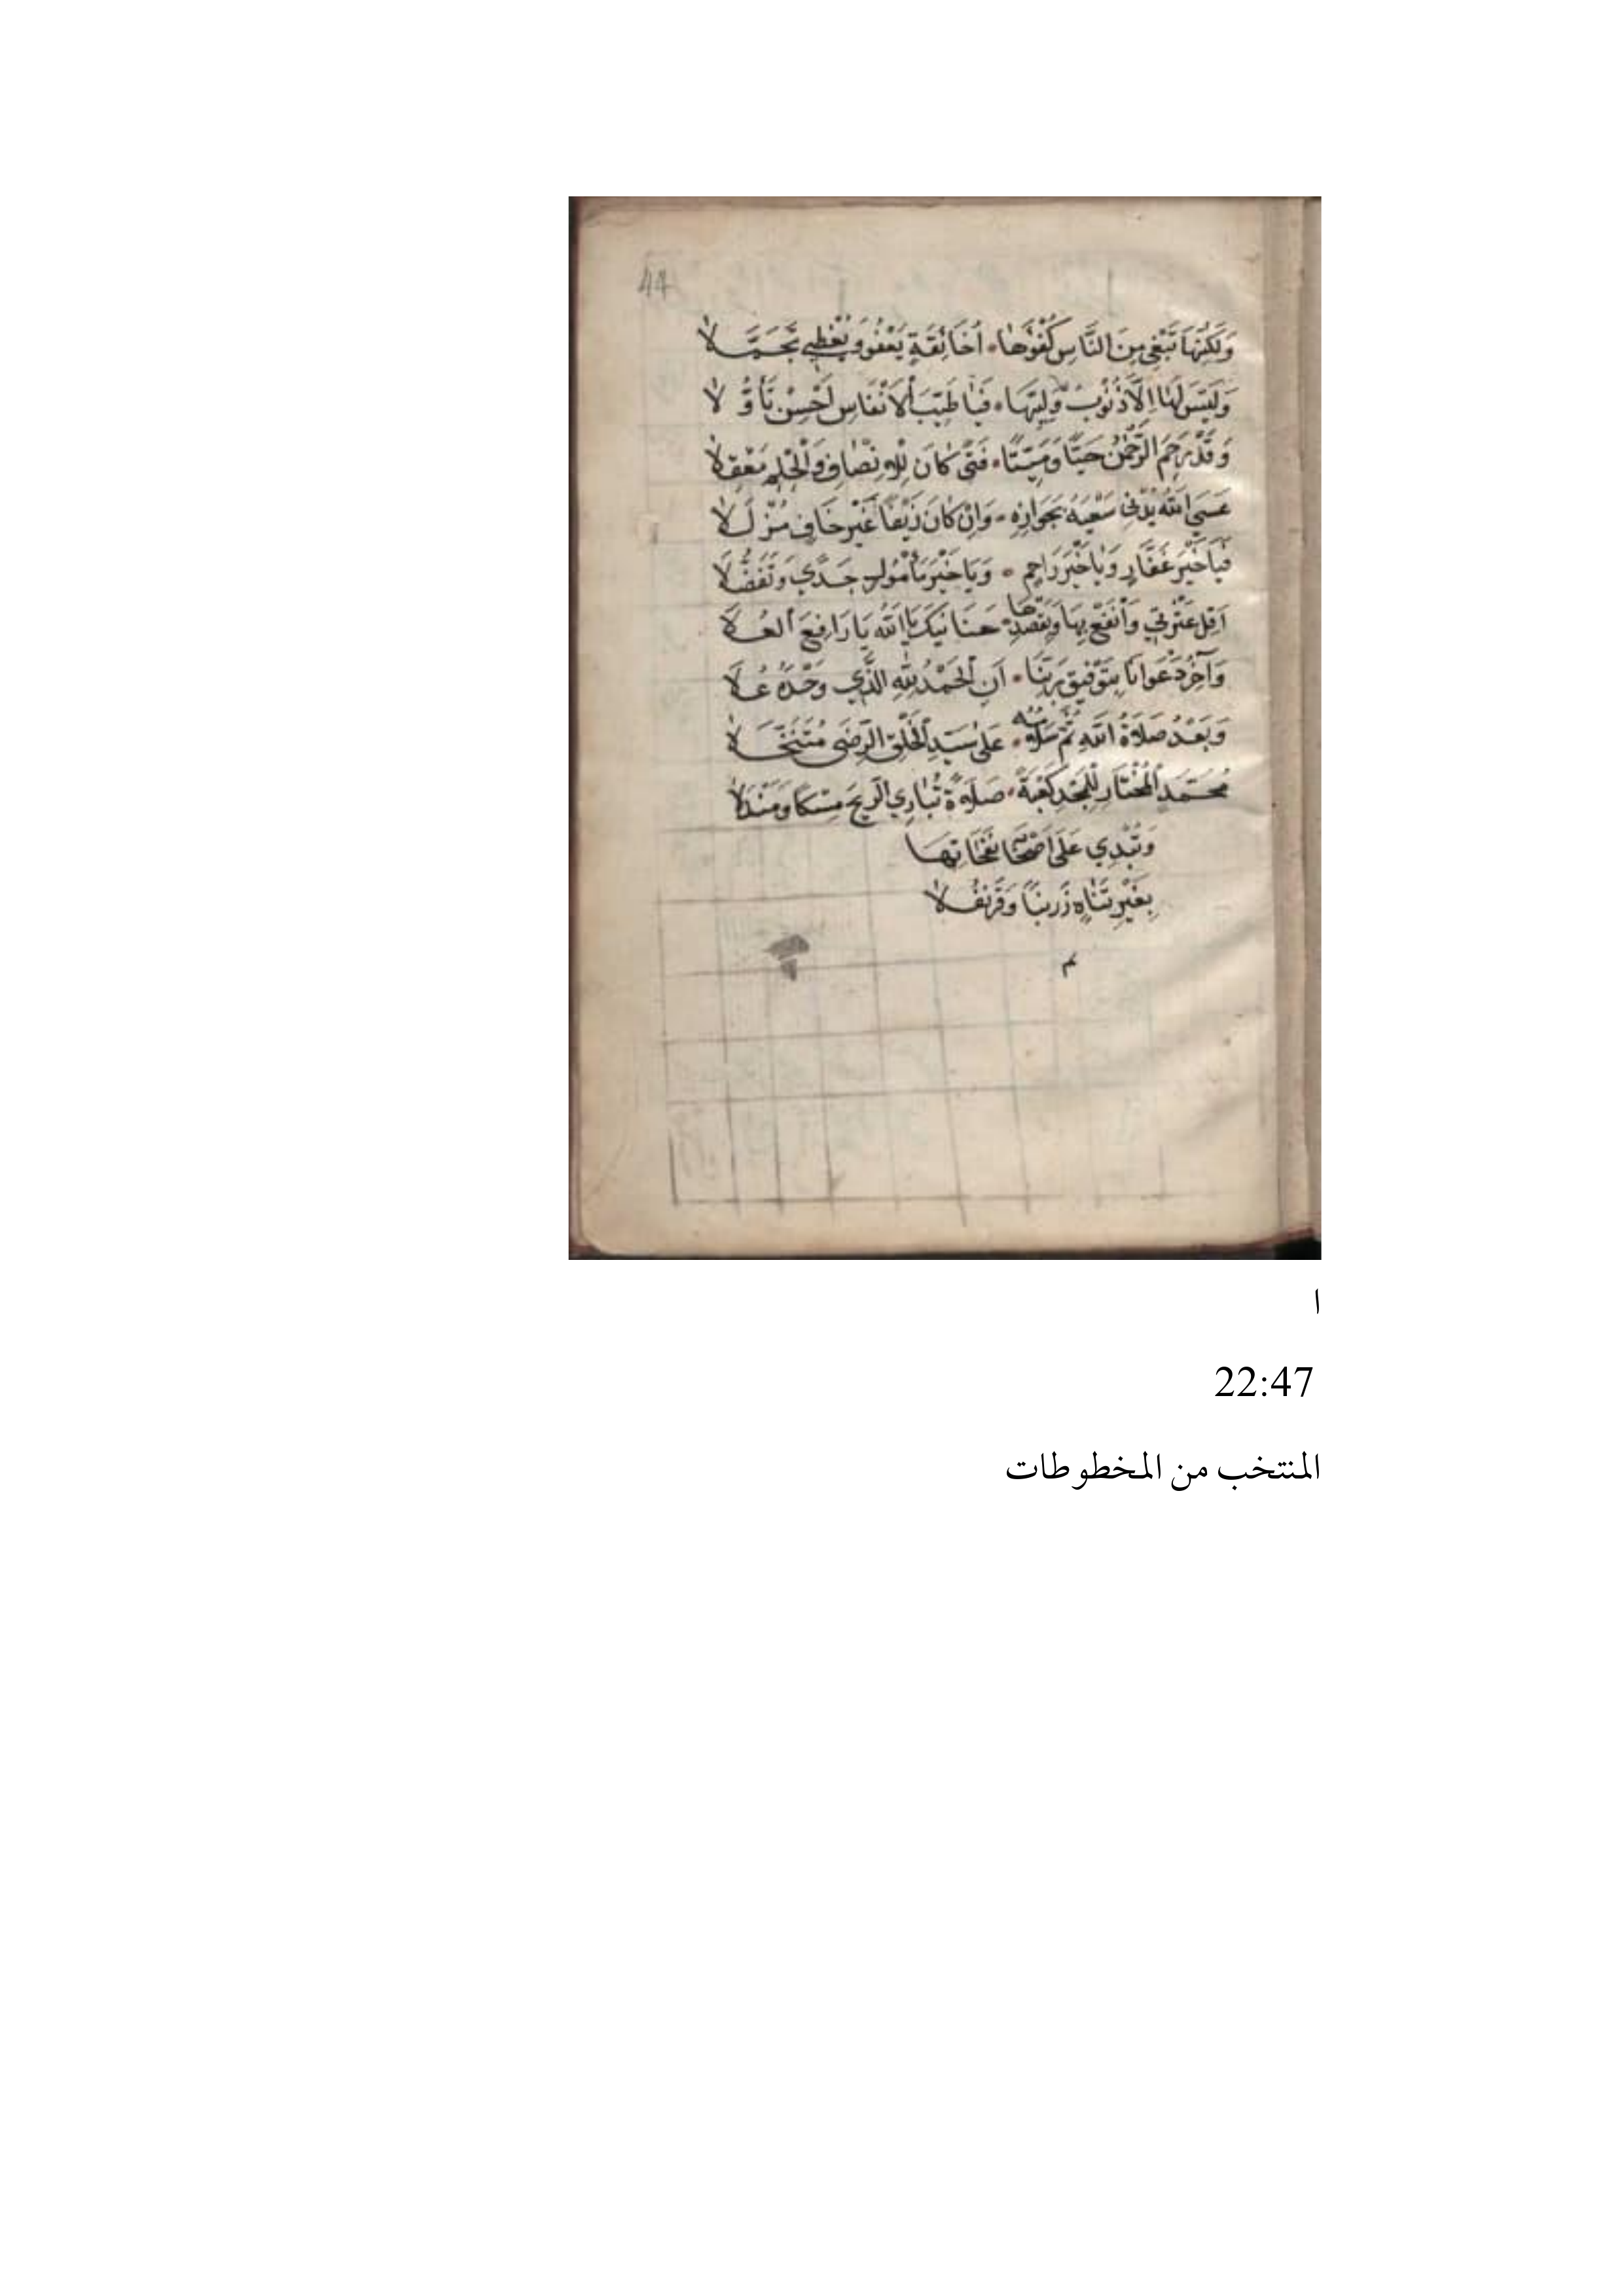 44
وَلَكِنَّهَا تَبْغِي مِنَ النَّاسِ كُفْؤَهَا • أَخَا ثِقَةٍ يَعْفُو وَيُغْضِي تَجَمُّلَا
وَلَيْسَ لَهَا اِلَّا ذُنُوبُ وَلِيِّهَا • فَيَا طَيِّبَ الْاَنْفَاسِ اَحْسِنْ تَأَوُّلَا
وَقُلْ رَحِمَ الرَّحْمٰنُ حَيًّا وَمَيِّتًا • فَتًى كَانَ لِلْاِنْصَافِ وَالْحِلْمِ مَعْقِلَا
عَسَى اللّٰهُ يُدْنِي سَعْيَهُ بِجَوَازِهِ • وَاِنْ كَانَ زَيْفًا غَيْرَ خَافٍ مُزَلَّلَا
فَيَا خَيْرَ غَفَّارٍ وَيَا خَيْرَ رَاحِمٍ • وَيَا خَيْرَ مَأْمُولٍ جَدًى وَتَفَضُّلَا
اَقِلْ عَثْرَتِي وَانْفَعْ بِهَا وَبِقَصْدِهَا • حَنَانَيْكَ يَا اَللّٰهُ يَا رَافِعَ الْعُلَا
وَآخِرُ دَعْوَانَا بِتَوْفِيقِ رَبِّنَا • اَنِ الْحَمْدُ لِلّٰهِ الَّذِي وَحْدَهُ عَلَا
وَبَعْدُ صَلَاةُ اللّٰهِ ثُمَّ سَلَامُهُ • عَلَى سَيِّدِ الْخَلْقِ الرِّضَى مُتَنَخَّلَا
مُحَمَّدٍ الْمُخْتَارِ لِلْمَجْدِ كَعْبَةً • صَلَاةً تُبَارِي الرِّيحَ مِسْكًا وَمَنْدَلَا
وَتُبْدِي عَلَى اَصْحَابِهِ نَفَحَاتِهَا
بِغَيْرِ تَنَاهٍ زَرْنَبًا وَقَرَنْفُلَا
م
ا
22:47
المنتخب من المخطوطات